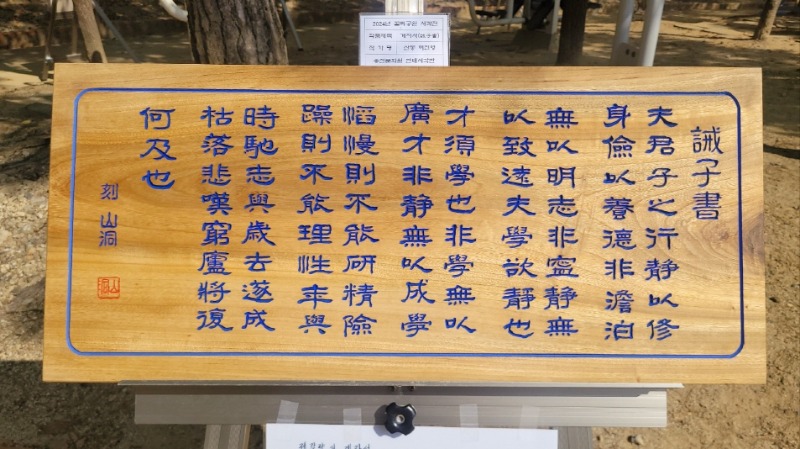 작품제목 계자서(誡子書)
작가명 산동
誡子書
夫君子之行靜以修
身儉以養德非澹泊
無以明志非寧靜無
以致遠夫學欲靜也
才須學也非學無以
廣才非靜無以成學
滔漫則不能研精險
躁則不能理性年與
時馳志與歲去遂成
枯落悲嘆窮廬將復
何及也
刻 山洞